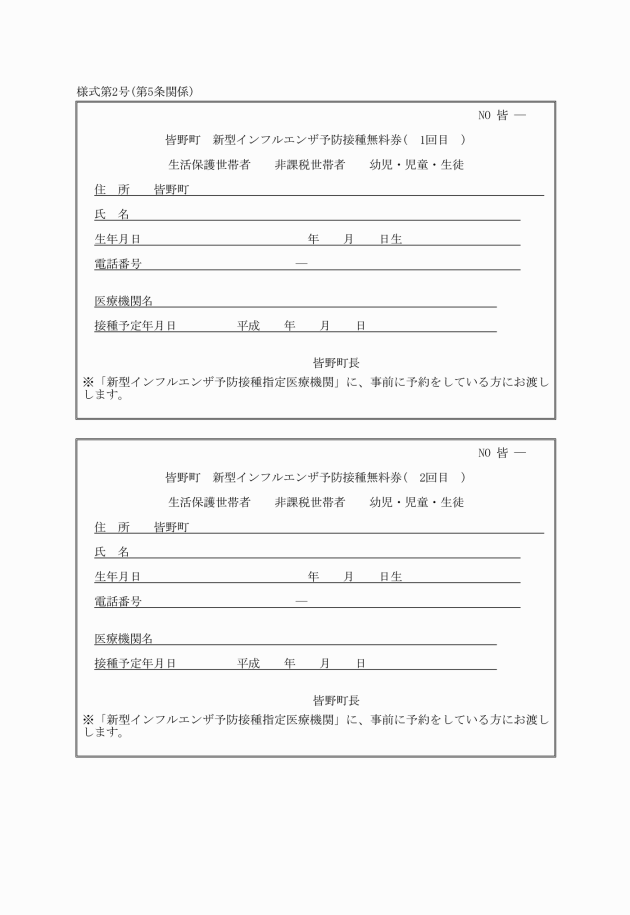 様式第2号(第5条関係)
NO 皆 ―
皆野町　新型インフルエンザ予防接種無料券(　1回目　)
生活保護世帯者　　非課税世帯者　　幼児・児童・生徒
住　所　　皆野町
氏　名
生年月日　　　　　　　　　　　　　　年　　月　　日生
電話番号　　　　　　　　　　　　　―
医療機関名
接種予定年月日　　　　　平成　　年　　月　　日
皆野町長
※「新型インフルエンザ予防接種指定医療機関」に、事前に予約をしている方にお渡し
します。
NO 皆 ―
皆野町　新型インフルエンザ予防接種無料券(　2回目　)
生活保護世帯者　　非課税世帯者　　幼児・児童・生徒
住　所　　皆野町
氏　名
生年月日　　　　　　　　　　　　　　年　　月　　日生
電話番号　　　　　　　　　　　　　―
医療機関名
接種予定年月日　　　　　平成　　年　　月　　日
皆野町長
※「新型インフルエンザ予防接種指定医療機関」に、事前に予約をしている方にお渡し
します。